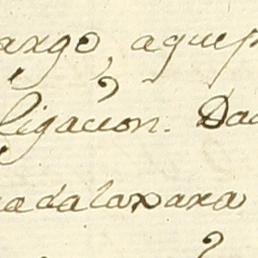 argo, aque
ligacion. Da
adalaxara